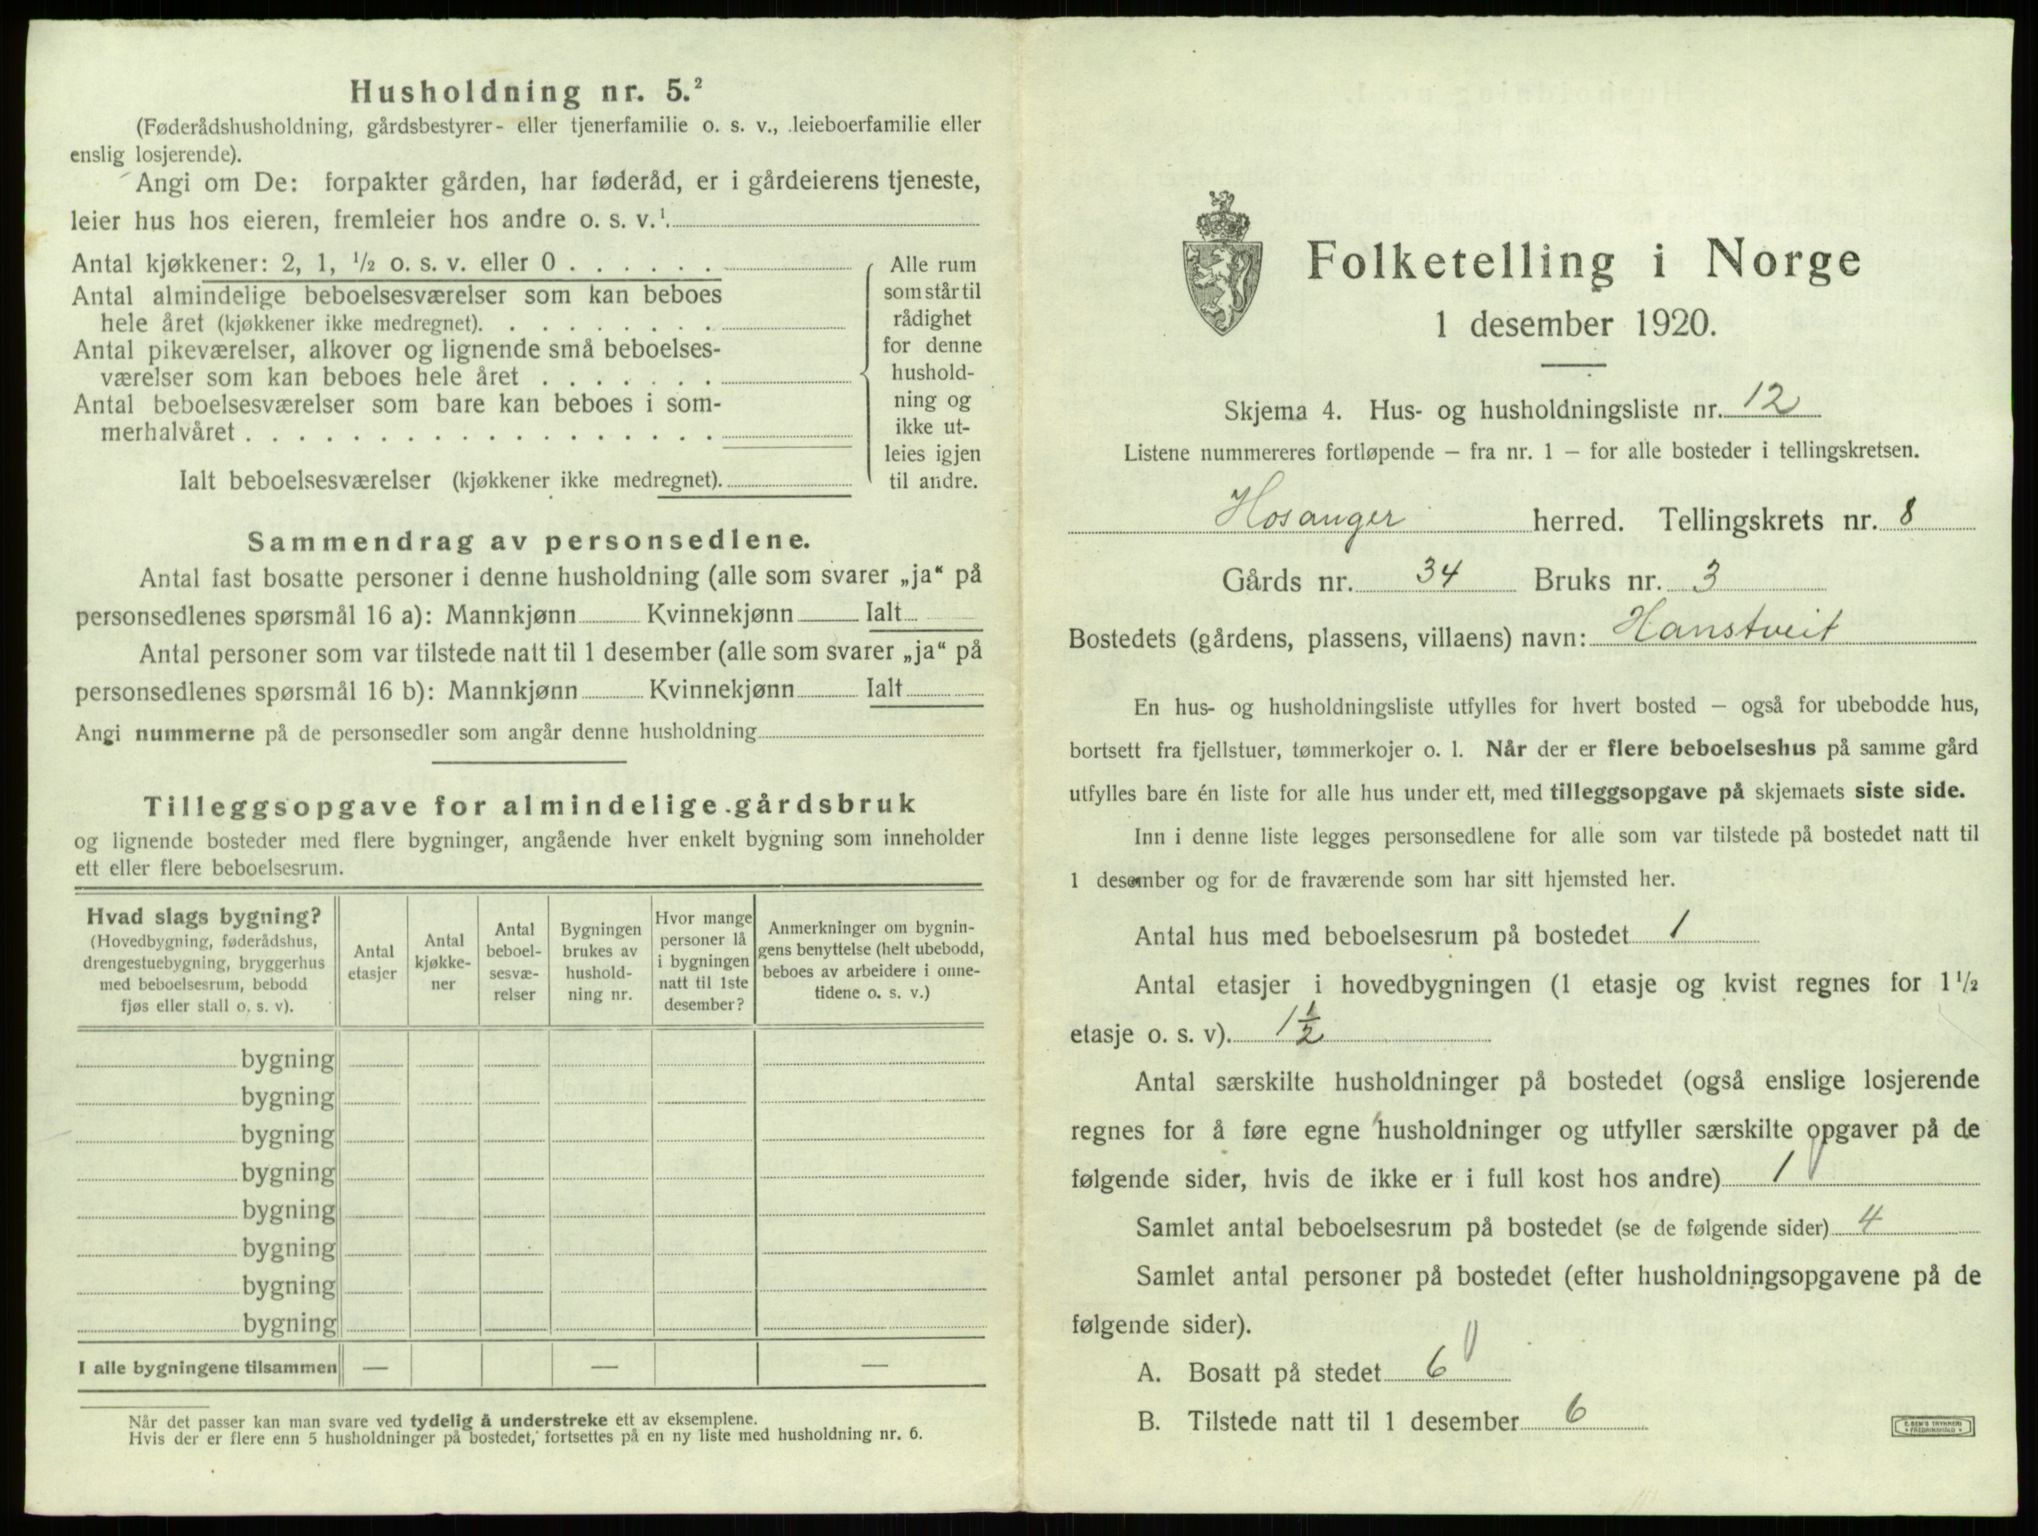 Husholdning nr. 5.²
(Føderådshusholdning, gårdsbestyrer- eller tjenerfamilie o. s. v., leieboerfamilie eller
enslig losjerende).
Angi om De: forpakter gården, har føderåd, er i gårdeierens tjeneste,
leier hus hos eieren, fremleier hos andre o. s. v.¹
Antal kjøkkener: 2, 1, ½ o. s. v. eller 0 . . . . . .
Antal almindelige beboelsesværelser som kan beboes
hele året (kjøkkener ikke medregnet). . . . . . . . .
Antal pikeværelser, alkover og lignende små beboelses-
værelser som kan beboes hele året . . . . . . .
Antal beboelsesværelser som bare kan beboes i som-
merhalvåret . . . . . . . . . . . . . . . . . .
Ialt beboelsesværelser (kjøkkener ikke medregnet).
Alle rum
som står til
rådighet
for denne
hushold-
ning og
ikke ut-
leies igjen
til andre.
Sammendrag av personsedlene.
Antal fast bosatte personer i denne husholdning (alle som svarer „ja“ på
personsedlenes spørsmål 16 a): Mannkjønn Kvinnekjønn Ialt
Antal personer som var tilstede natt til 1 desember (alle som svarer „ja“ på
personsedlenes spørsmål 16 b): Mannkjønn Kvinnekjønn Ialt
Angi nummerne på de personsedler som angår denne husholdning
Tilleggsopgave for almindelige gårdsbruk
og lignende bosteder med flere bygninger, angående hver enkelt bygning som inneholder
ett eller flere beboelsesrum.
Hvad slags bygning?
(Hovedbygning, føderådshus,
drengestuebygning, bryggerhus
med beboelsesrum, bebodd
fjøs eller stall o. s. v).
Antal
etasjer
Antal
kjøkke-
ner
Antal
beboel-
sesvæ-
relser
Bygningen
brukes av
hushold-
ning nr.
Hvor mange
personer lå
i bygningen
natt til 1ste
desember?
Anmerkninger om bygnin-
gens benyttelse (helt ubebodd,
beboes av arbeidere i onne-
tidene o. s. v.)
bygning
bygning
bygning
bygning
bygning
bygning
bygning
bygning
I alle bygningene tilsammen — — —
Når det passer kan man svare ved tydelig å understreke ett av eksemplene.
Hvis der er flere enn 5 husholdninger på bostedet, fortsettes på en ny liste med husholdning nr. 6.
Folketelling i Norge
1 desember 1920.
Skjema 4. Hus- og husholdningsliste nr. 12
Listene nummereres fortløpende – fra nr. 1 – for alle bosteder i tellingskretsen.
Hosanger herred. Tellingskrets nr. 8
Gårds nr. 34 Bruks nr. 3
Bostedets (gårdens, plassens, villaens) navn: Hanstveit
En hus- og husholdningsliste utfylles for hvert bosted – også for ubebodde hus,
bortsett fra fjellstuer, tømmerkojer o. l. Når der er flere beboelseshus på samme gård
utfylles bare én liste for alle hus under ett, med tilleggsopgave på skjemaets siste side.
Inn i denne liste legges personsedlene for alle som var tilstede på bostedet natt til
1 desember og for de fraværende som har sitt hjemsted her.
Antal hus med beboelsesrum på bostedet 1
Antal etasjer i hovedbygningen (1 etasje og kvist regnes for 1½
etasje o. s. v). 1½
Antal særskilte husholdninger på bostedet (også enslige losjerende
regnes for å føre egne husholdninger og utfyller særskilte opgaver på de
følgende sider, hvis de ikke er i full kost hos andre) 1
Samlet antal beboelsesrum på bostedet (se de følgende sider) 4
Samlet antal personer på bostedet (efter husholdningsopgavene på de
følgende sider).
A. Bosatt på stedet 6
B. Tilstede natt til 1 desember 6
E. SEM'S TRYKKERI
FREDRIKSHALD